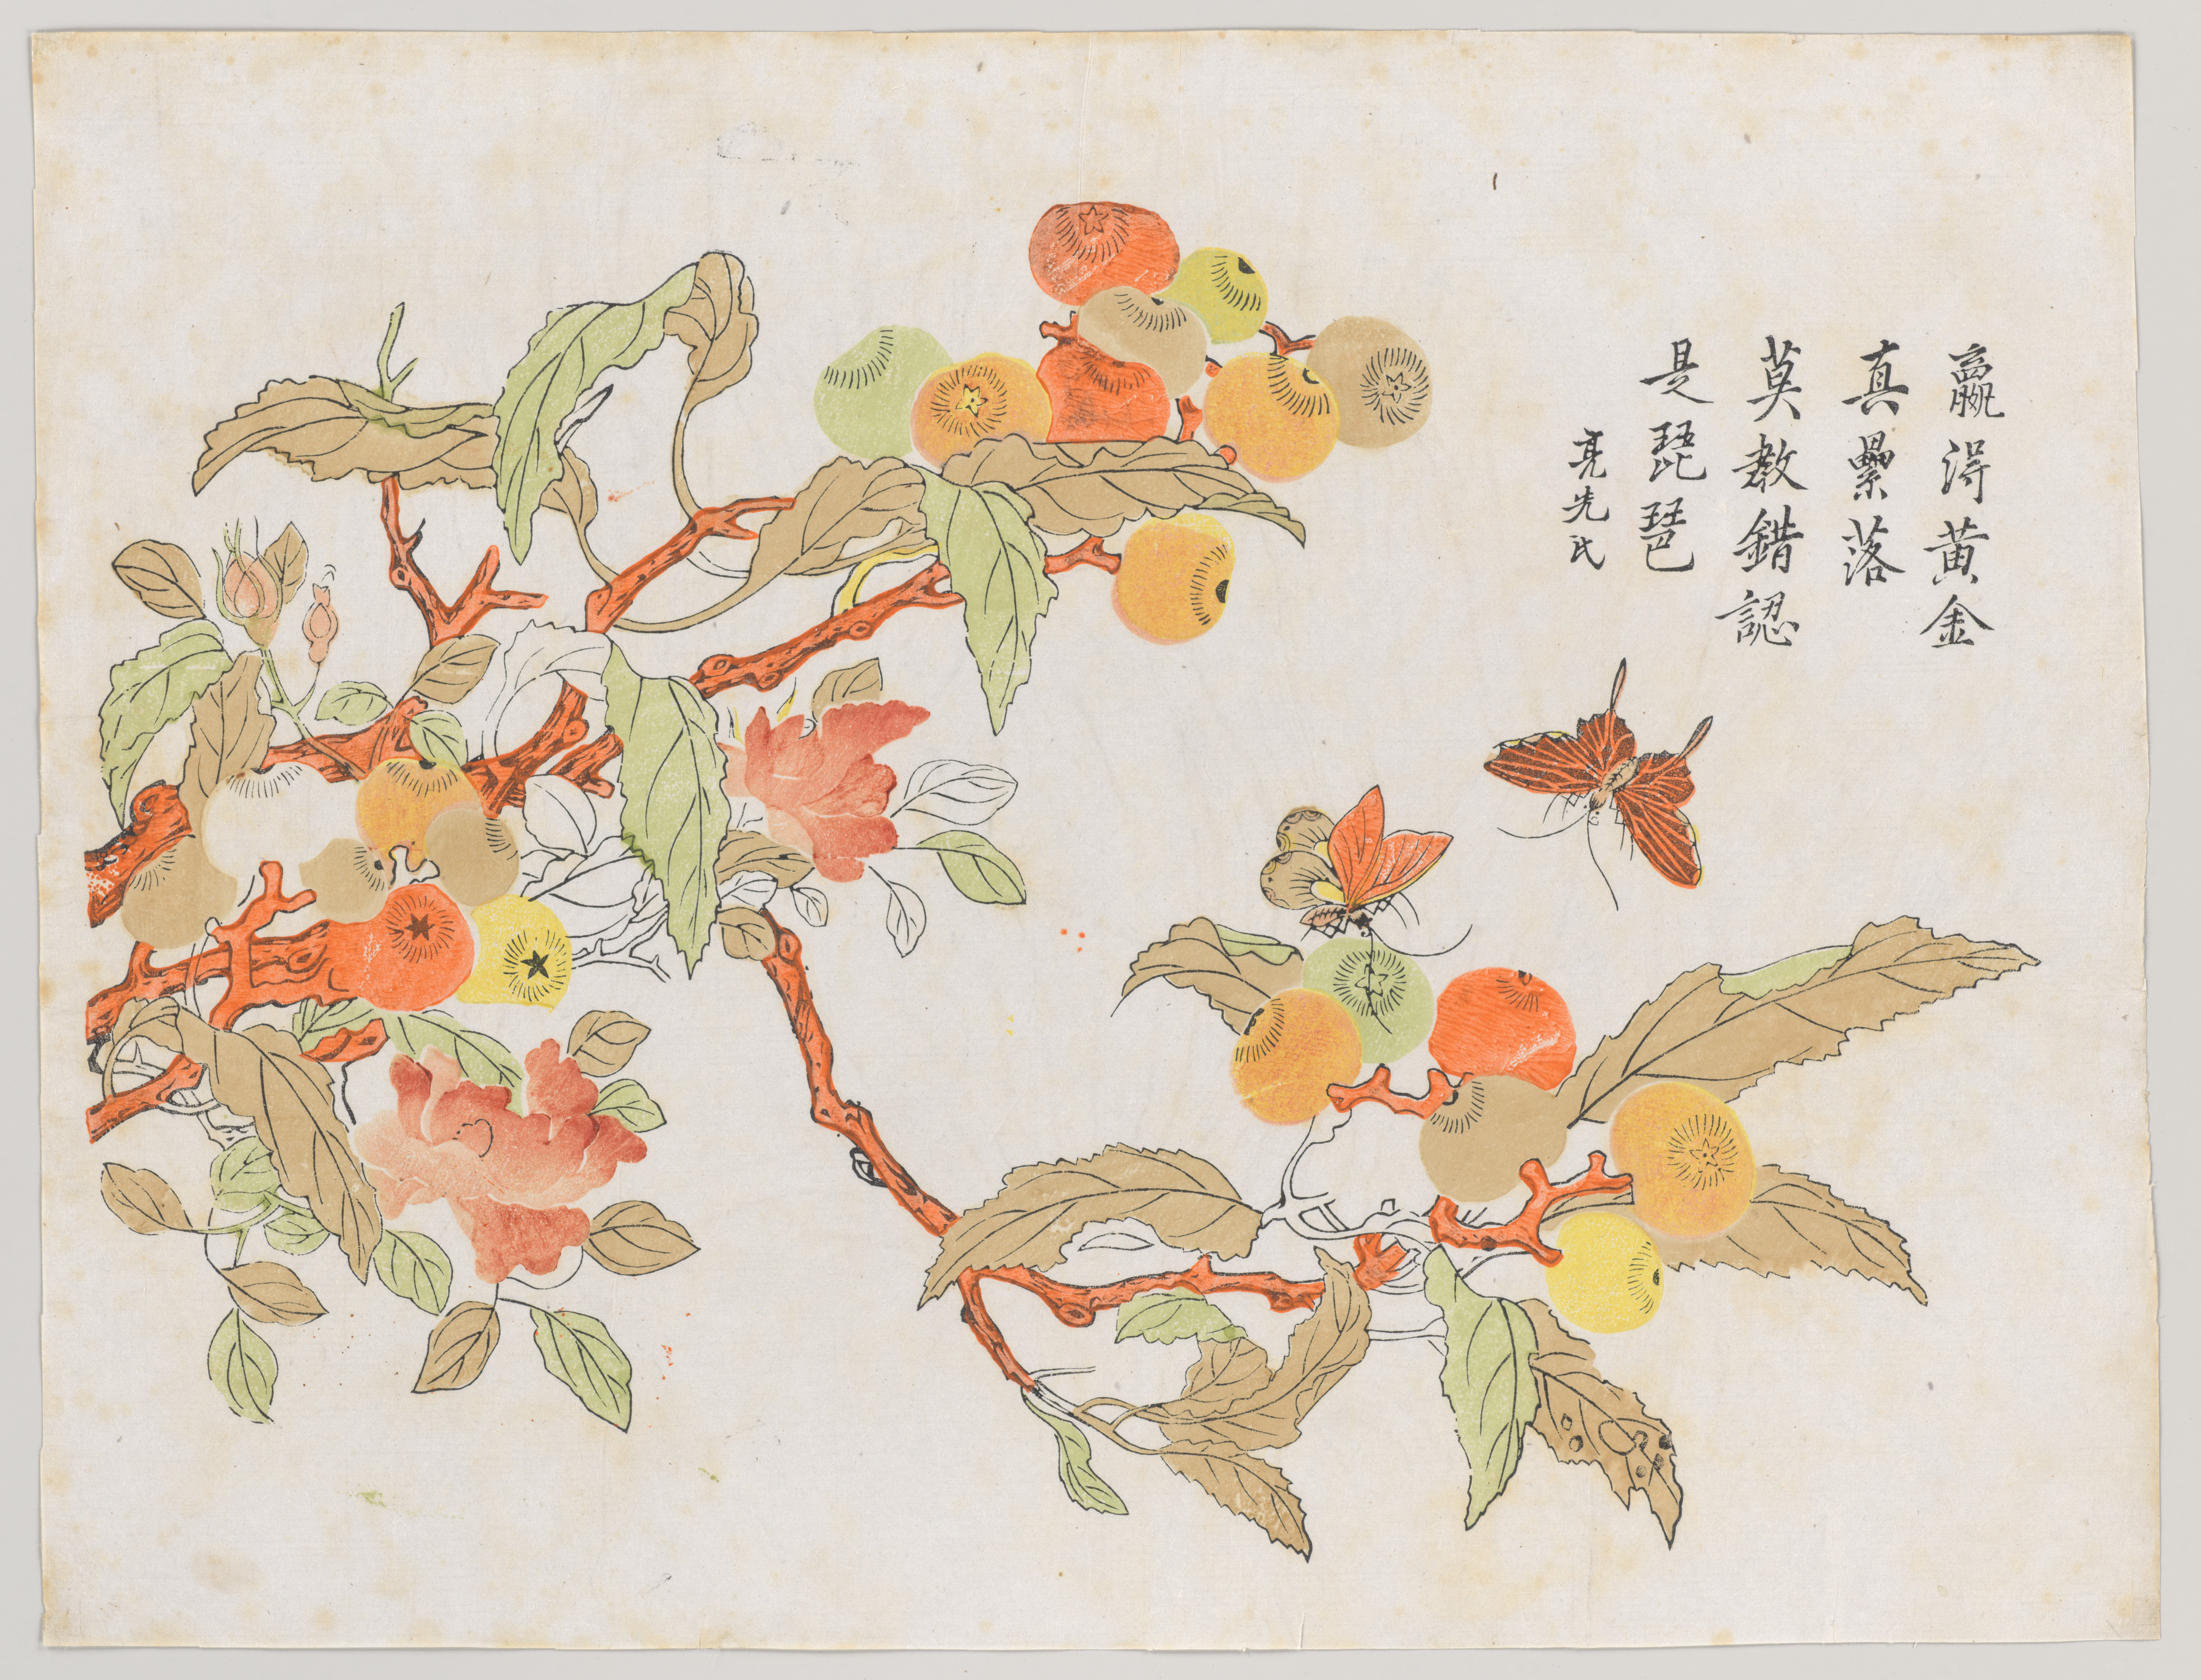 贏得黃金
真纍落
莫教錯認
是琵琶
亮先氏